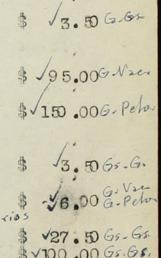 $ ✓3.50 G.Gs.
$ ✓95.00 G.Vac.
$ ✓150.00 G.Pelos
$ ✓3.50 Gs.G.
G.Vac
$ ✓6.00 G.Pelos
$ ✓27.50 Gs.Gs
$ ✓100.00 Gs.Gs.